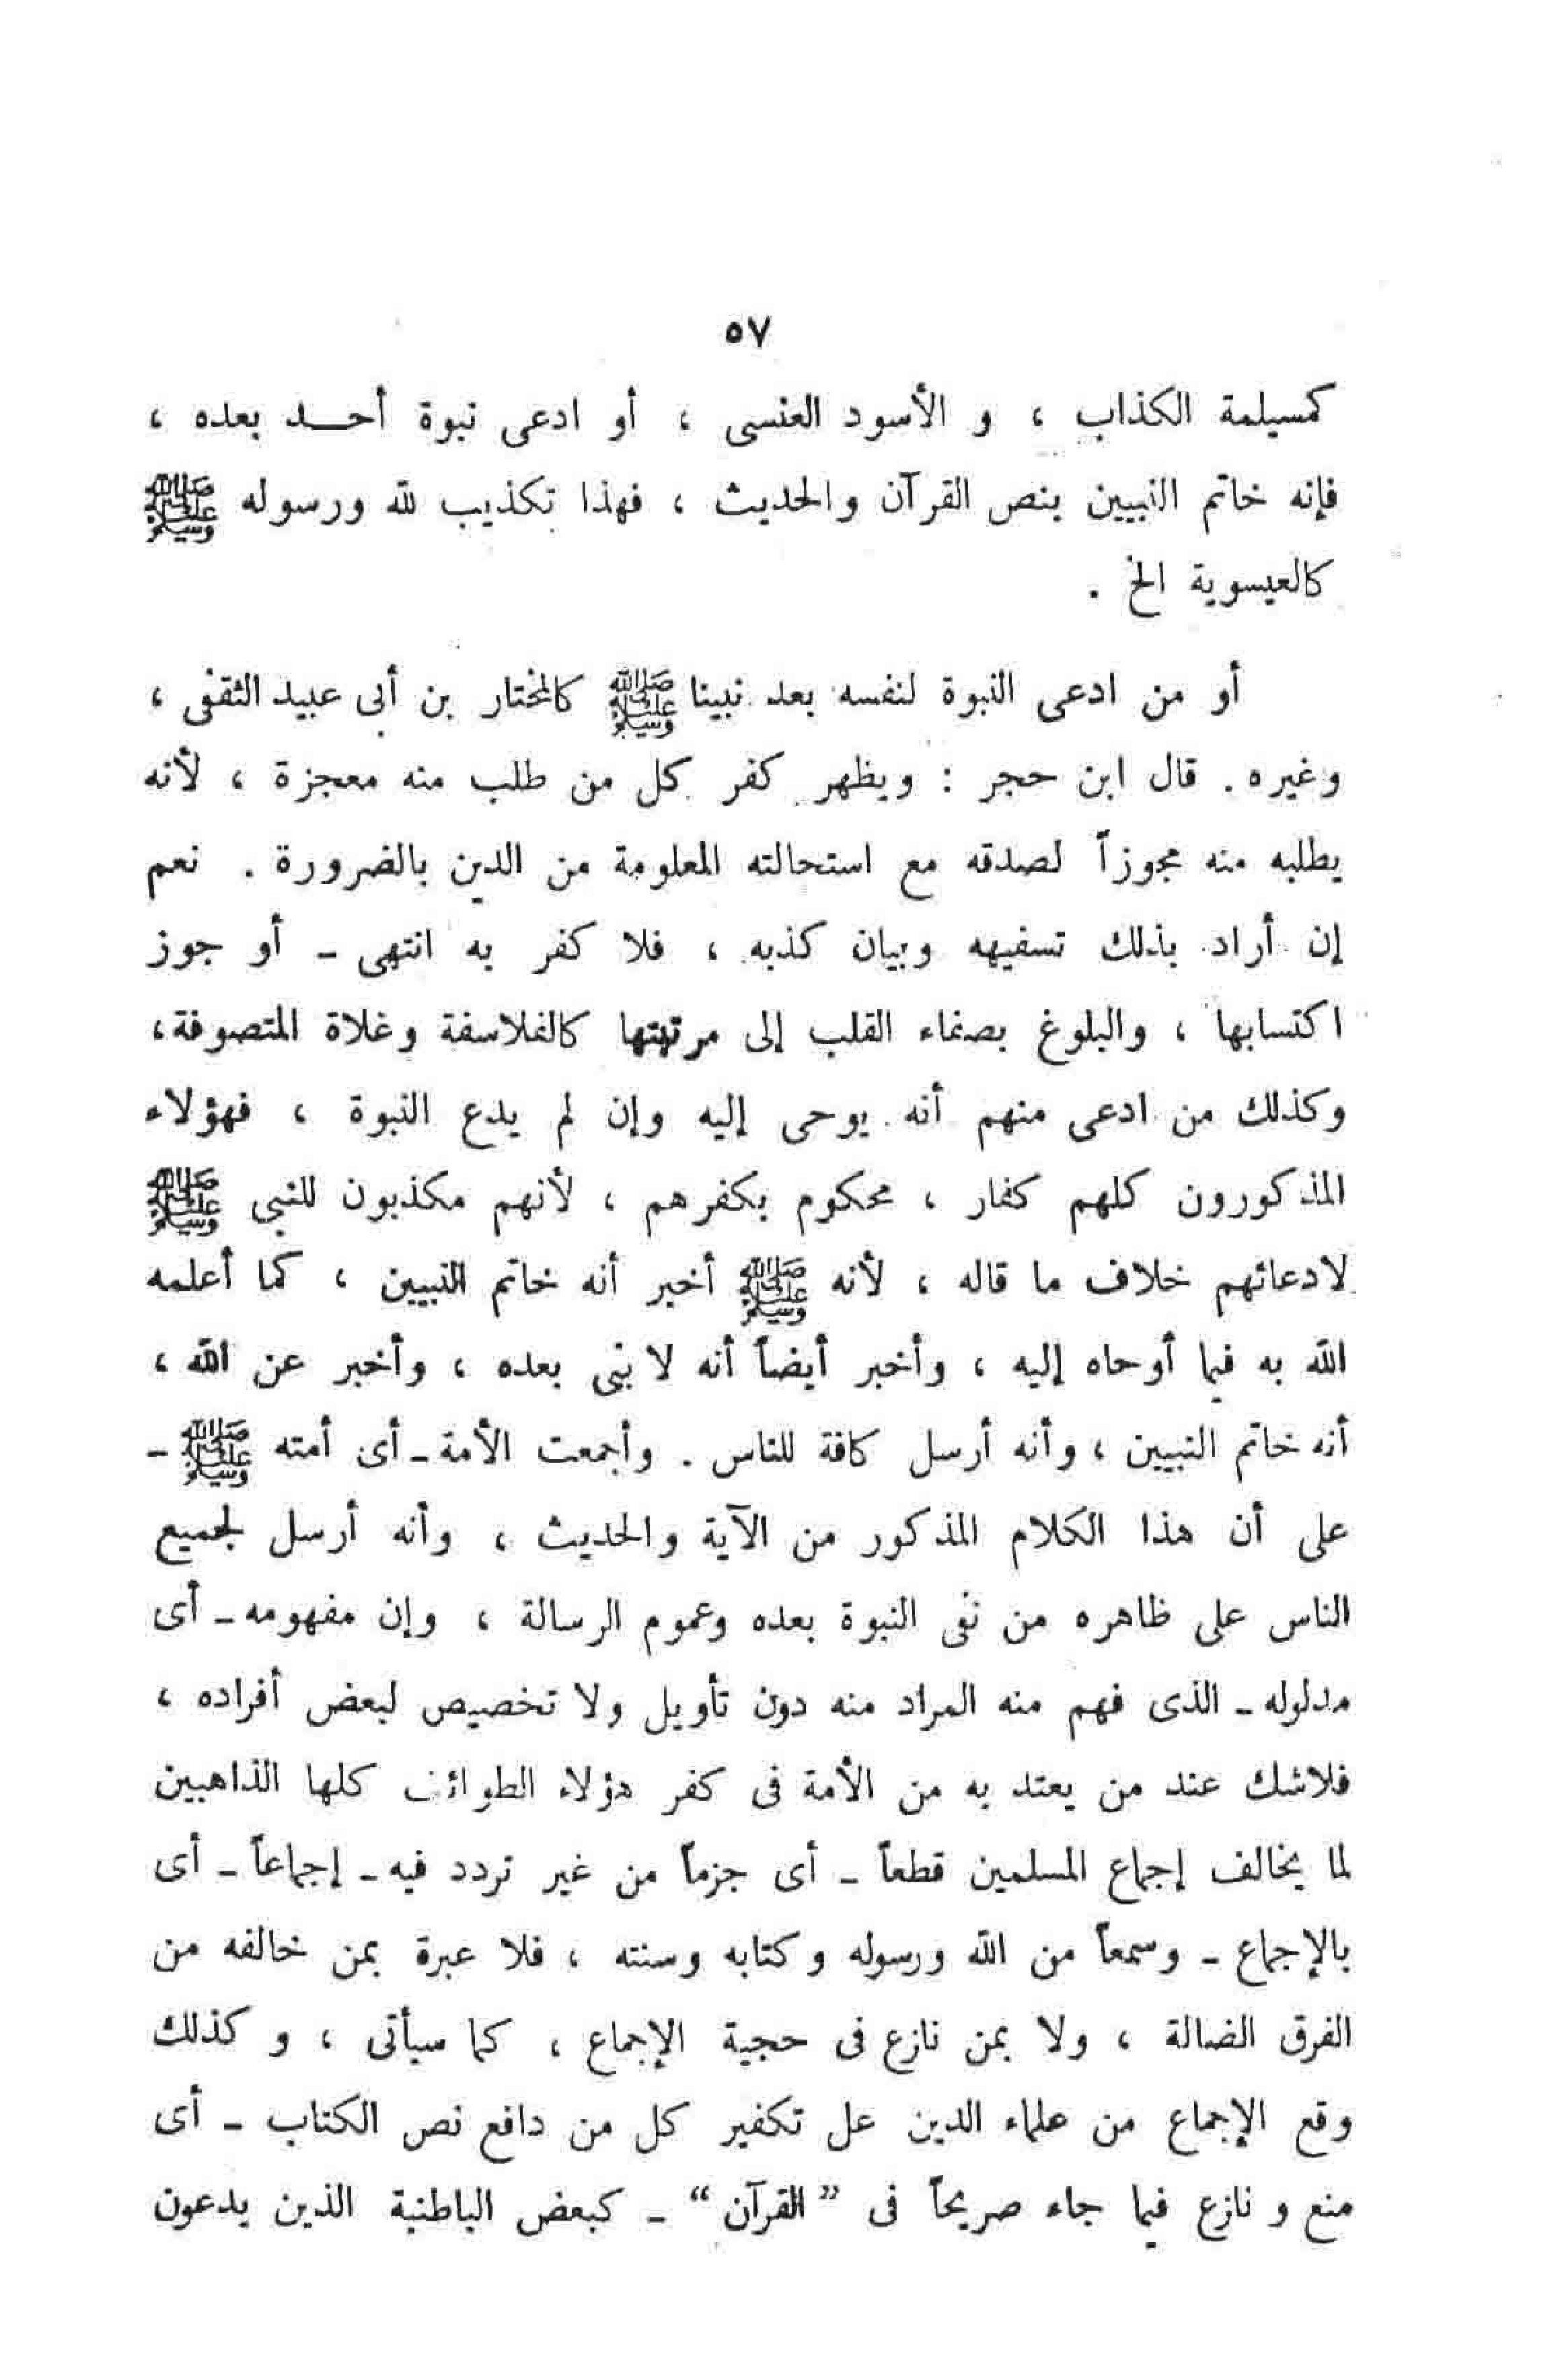 ٥٧
كمسيلمة الكذاب ، و الأسود العنسى ، أو ادعى نبوة أحـــد بعده ،
فإنه خاتم النبيين بنص القرآن والحديث ، فهذا تكذيب لله ورسوله ﷺ
كالعيسوية الخ .
أو من ادعى النبوة لنفسه بعد نبينا ﷺ كالمختار بن أبى عبيد الثقفى ،
وغيره . قال ابن حجر : ويظهر كفر كل من طلب منه معجزة ، لأنه
يطلبه منه مجوزاً لصدقه مع استحالته المعلومة من الدين بالضرورة . نعم
إن أراد بذلك تسفيهه وبيان كذبه ، فلا كفر به انتهى - أو جوز
اكتسابها ، والبلوغ بصفاء القلب إلى مرتبتها كالفلاسفة وغلاة المتصوفة ،
وكذلك من ادعى منهم أنه يوحى إليه وإن لم يدع النبوة ، فهؤلاء
المذكورون كلهم كفار ، محكوم بكفرهم ، لأنهم مكذبون للنبى ﷺ
لادعائهم خلاف ما قاله ، لأنه ﷺ أخبر أنه خاتم النبيين ، كما أعلمه
الله به فيما أوحاه إليه ، وأخبر أيضاً أنه لا نبى بعده ، وأخبر عن الله ،
أنه خاتم النبيين ، وأنه أرسل كافة للناس . وأجمعت الأمة - أى أمته ﷺ -
على أن هذا الكلام المذكور من الآية والحديث ، وأنه أرسل لجميع
الناس على ظاهره من نفى النبوة بعده وعموم الرسالة ، وإن مفهومه - أى
مدلوله - الذى فهم منه المراد منه دون تأويل ولا تخصيص لبعض أفراده ،
فلاشك عند من يعتد به من الأمة فى كفر هؤلاء الطوائف كلها الذاهبين
لما يخالف إجماع المسلمين قطعاً - أى جزماً من غير تردد فيه - إجماعاً - أى
بالإجماع - وسمعاً من الله ورسوله وكتابه وسنته ، فلا عبرة بمن خالفه من
الفرق الضالة ، ولا بمن نازع فى حجية الإجماع ، كما سيأتى ، و كذلك
وقع الإجماع من علماء الدين عل تكفير كل من دافع نص الكتاب - أى
منع و نازع فيما جاء صريحاً فى ”القرآن“ - كبعض الباطنية الذين يدعون